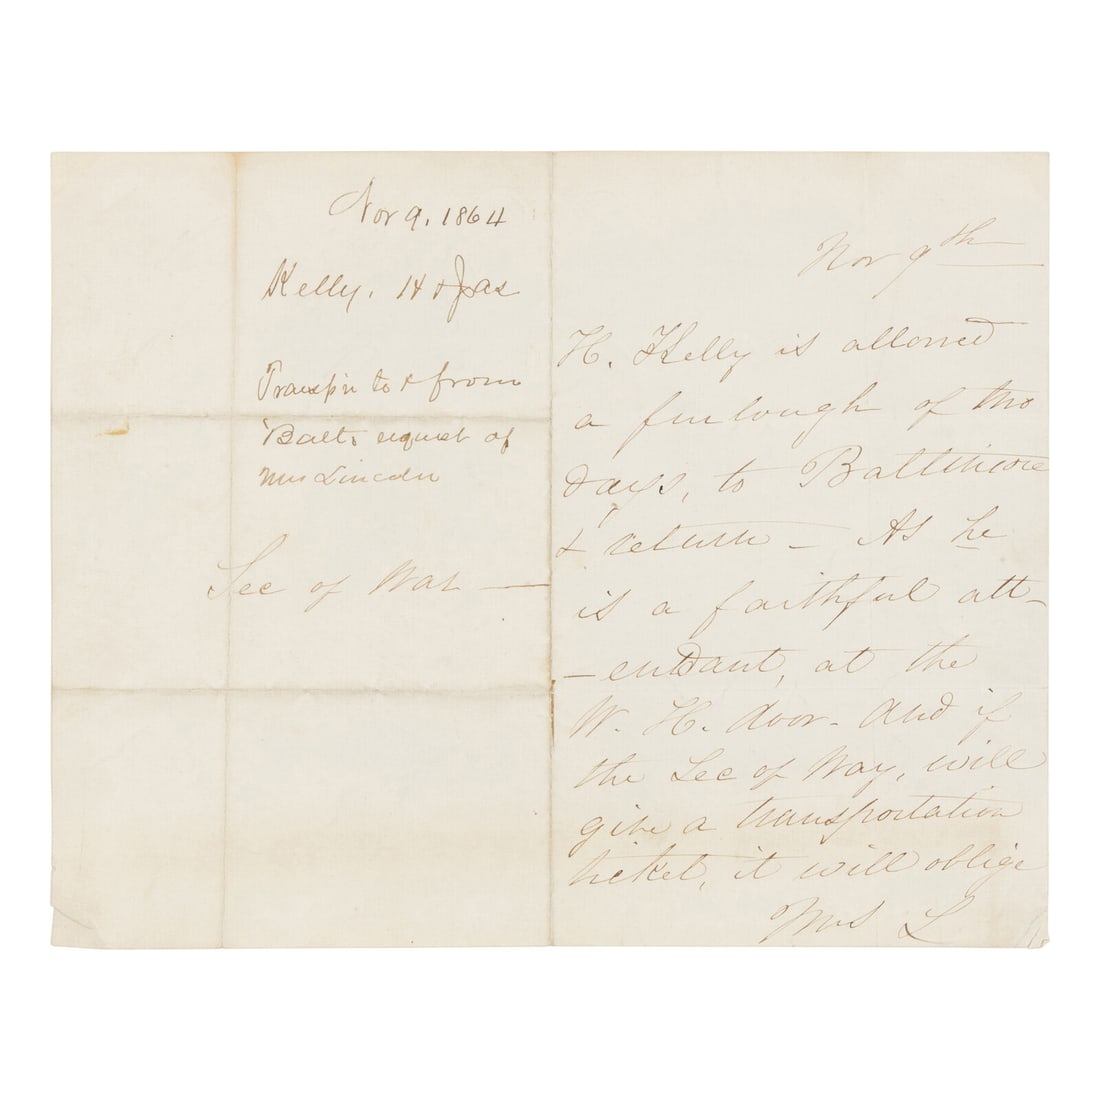 Nov 9, 1864
Kelly, H & Jas
Transp'n to & from
Balto request of
Mrs Lincoln
Sec of War —
Nov 9th
H. Kelly is allowed
a furlough of two
days, to Baltimore
& return — As he
is a faithful att-
-endant, at the
W. H. door - And if
the Sec of War, will
give a transportation
ticket, it will oblige
Mrs L